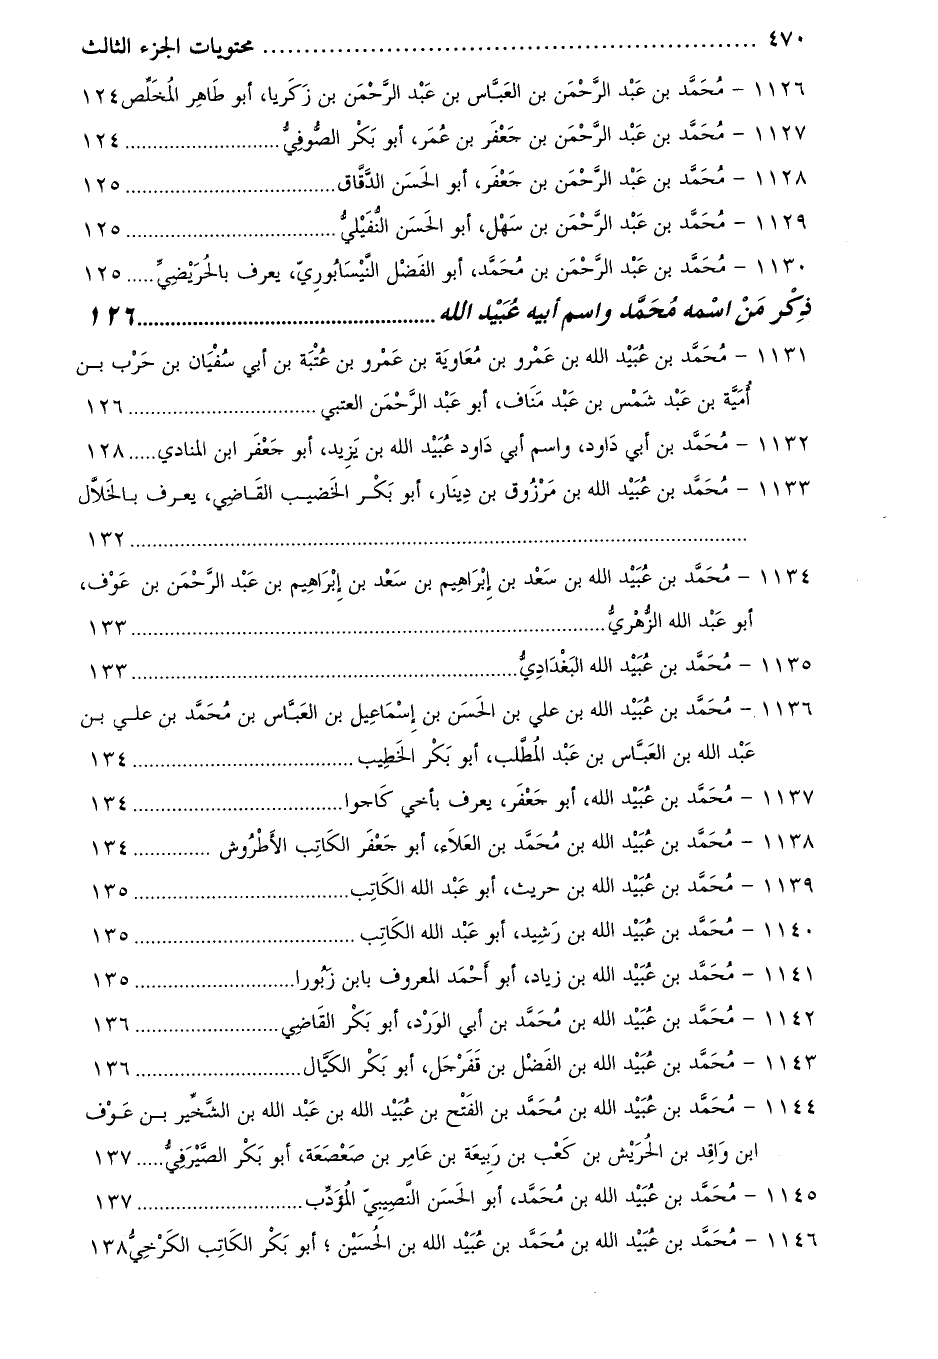 ٤٧٠ ........ محتويات الجزء الثالث
١١٢٦ - مُحَمَّد بن عَبْد الرَّحْمَن بن العَبَّاس بن عَبْد الرَّحْمَن بن زَكَريا، أبو طَاهِر المُخَلِّص ١٢٤
١١٢٧ - مُحَمَّد بن عَبْد الرَّحْمَن بن جَعْفَر بن عُمَر، أبو بَكْر الصُّوفِيُّ ........ ١٢٤
١١٢٨ - مُحَمَّد بن عَبْد الرَّحْمَن بن جَعْفَر، أبو الحَسَن الدَّقَّاق ........ ١٢٥
١١٢٩ - مُحَمَّد بن عَبْد الرَّحْمَن بن سَهْل، أبو الحَسَن النُّفَيْليُّ ........ ١٢٥
١١٣٠ - مُحَمَّد بن عَبْد الرَّحْمَن بن مُحَمَّد، أبو الفَضْل النَّيْسَابُوريّ، يعرف بالحُرَيْضِيِّ ..... ١٢٥
ذِكْر مَنْ اسْمه مُحَمَّد واسم أبيه عُبَيْد الله ........ ١٢٦
١١٣١ - مُحَمَّد بن عُبَيْد الله بن عَمْرو بن مُعَاويَة بن عَمْرو بن عُتْبَة بن أبي سُفْيَان بن حَرْب بن
أُمَيَّة بن عَبْد شَمْس بن عَبْد مَنَاف، أبو عَبْد الرَّحْمَن العتبي ........ ١٢٦
١١٣٢ - مُحَمَّد بن أبي دَاود، واسم أبي دَاود عُبَيْد الله بن يَزِيد، أبو جَعْفَر ابن المنادي ..... ١٢٨
١١٣٣ - مُحَمَّد بن عُبَيْد الله بن مَرْزُوق بن دِينَار، أبو بَكْر الخَضيب القَاضِي، يعرف بالخَلاَّل
........ ١٣٢
١١٣٤ - مُحَمَّد بن عُبَيْد الله بن سَعْد بن إبْرَاهِيم بن سَعْد بن إبْرَاهِيم بن عَبْد الرَّحْمَن بن عَوْف،
أبو عَبْد الله الزُّهْريُّ ........ ١٣٣
١١٣٥ - مُحَمَّد بن عُبَيْد الله البَغْدَادِيُّ ........ ١٣٣
١١٣٦ - مُحَمَّد بن عُبَيْد الله بن علي بن الحَسَن بن إسْمَاعِيل بن العَبَّاس بن مُحَمَّد بن علي بن
عَبْد الله بن العَبَّاس بن عَبْد المُطَّلب، أبو بَكْر الخَطِيب ........ ١٣٤
١١٣٧ - مُحَمَّد بن عُبَيْد الله، أبو جَعْفَر، يعرف بأخي كَاجوا ........ ١٣٤
١١٣٨ - مُحَمَّد بن عُبَيْد الله بن مُحَمَّد بن العَلاَء، أبو جَعْفَر الكَاتِب الأَطْرُوش ........ ١٣٤
١١٣٩ - مُحَمَّد بن عُبَيْد الله بن حريث، أبو عَبْد الله الكَاتِب ........ ١٣٥
١١٤٠ - مُحَمَّد بن عُبَيْد الله بن رَشِيد، أبو عَبْد الله الكَاتِب ........ ١٣٥
١١٤١ - مُحَمَّد بن عُبَيْد الله بن زياد، أبو أَحْمَد المعروف بابن زَبُورا ........ ١٣٥
١١٤٢ - مُحَمَّد بن عُبَيْد الله بن مُحَمَّد بن أبي الوَرْد، أبو بَكْر القَاضِي ........ ١٣٦
١١٤٣ - مُحَمَّد بن عُبَيْد الله بن الفَضْل بن قَفَرْجَل، أبو بَكْر الكَيَّال ........ ١٣٦
١١٤٤ - مُحَمَّد بن عُبَيْد الله بن مُحَمَّد بن الفَتْح بن عُبَيْد الله بن عَبْد الله بن الشَّخِّير بن عَوْف
ابن وَاقِد بن الحُرَيْش بن كَعْب بن رَبِيعَة بن عَامِر بن صَعْصَعَة، أبو بَكْر الصَّيْرَفِيُّ ..... ١٣٧
١١٤٥ - مُحَمَّد بن عُبَيْد الله بن مُحَمَّد، أبو الحَسَن النَّصِيبيّ المُؤَدِّب ........ ١٣٧
١١٤٦ - مُحَمَّد بن عُبَيْد الله بن مُحَمَّد بن عُبَيْد الله بن الحُسَيْن ؛ أبو بَكْر الكَاتِب الكَرْخِيُّ ١٣٨